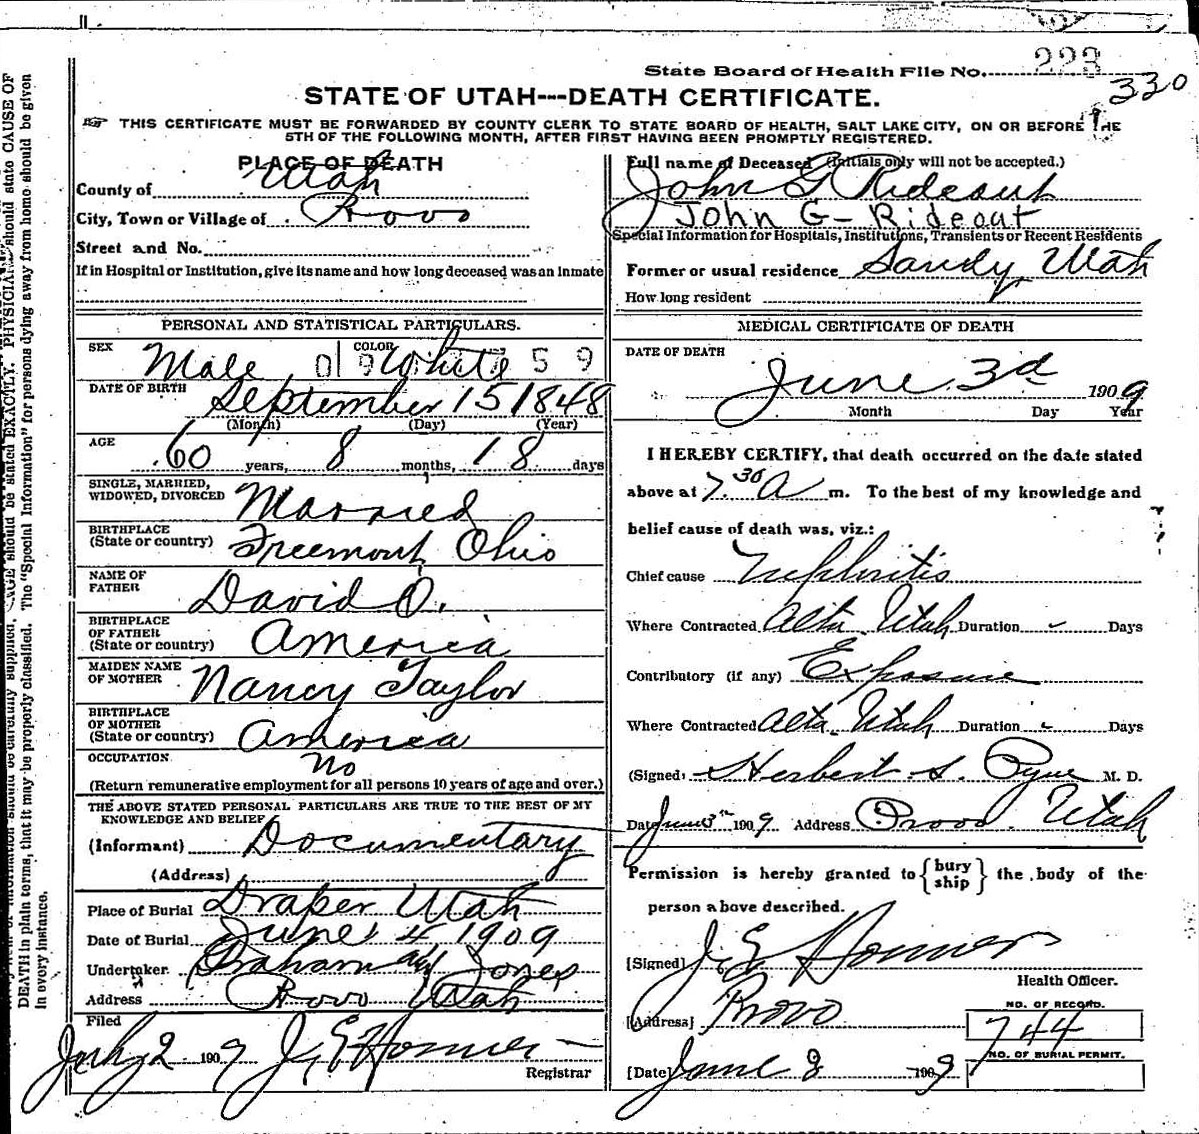 223
State Board of Health File No.
330
STATE OF UTAH---DEATH CERTIFICATE.
THIS CERTIFICATE MUST BE FORWARDED BY COUNTY CLERK TO STATE BOARD OF HEALTH, SALT LAKE CITY, ON OR BEFORE THE
5TH OF THE FOLLOWING MONTH, AFTER FIRST HAVING BEEN PROMPTLY REGISTERED.
PLACE OF DEATH
County of Utah
City, Town or Village of Provo
Street and No.
If in Hospital or Institution, give its name and how long deceased was an inmate
PERSONAL AND STATISTICAL PARTICULARS.
SEX Male COLOR White 5 9
DATE OF BIRTH September 15 1848
(Month) (Day) (Year)
AGE 60 years, 8 months, 18 days
SINGLE, MARRIED,
WIDOWED, DIVORCED Married
BIRTHPLACE
(State or country) Freemont, Ohio
NAME OF
FATHER David O.
BIRTHPLACE
OF FATHER
(State or country) America
MAIDEN NAME
OF MOTHER Nancy Taylor
BIRTHPLACE
OF MOTHER
(State or country) America
OCCUPATION no
(Return remunerative employment for all persons 10 years of age and over.)
THE ABOVE STATED PERSONAL PARTICULARS ARE TRUE TO THE BEST OF MY
KNOWLEDGE AND BELIEF
(Informant) Documentary
(Address)
Place of Burial Draper Utah
Date of Burial June 4 1909
Undertaker. Graham and Jones
Address Provo Utah
Filed
July 2 1909 J. E. Homer
Registrar
Full name of Deceased (Initials only will not be accepted.)
John G Rideout
John G- Rideout
Special Information for Hospitals, Institutions, Transients or Recent Residents
Former or usual residence Sandy, Utah
How long resident
MEDICAL CERTIFICATE OF DEATH
DATE OF DEATH
June 3d 1909
Month Day Year
I HEREBY CERTIFY, that death occurred on the date stated
above at 7.30 A m. To the best of my knowledge and
belief cause of death was, viz.:
Chief cause Nephritis
Where Contracted Alta, Utah Duration - Days
Contributory (if any) Exposure
Where Contracted Alta, Utah Duration - Days
(Signed) Herbert S. Pyne M. D.
Date June 3rd 1909 Address Provo. Utah
Permission is hereby granted to { bury ship } the body of the
person above described.
[Signed] J. E. Homer
Health Officer.
[Address] Provo
NO. OF RECORD.
744
NO. OF BURIAL PERMIT.
[Date] June 8 1909
AGE should be stated EXACTLY. PHYSICIANS should state CAUSE OF
DEATH in plain terms, that it may be properly classified. The "Special Information" for persons dying away from home should be given
in every instance.